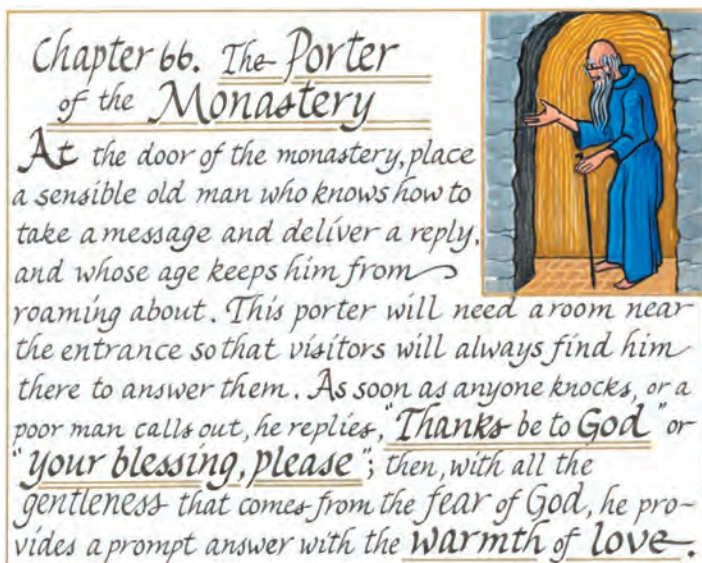 Chapter 66. The Porter
of the Monastery
At the door of the monastery, place
a sensible old man who knows how to
take a message and deliver a reply,
and whose age keeps him from
roaming about. This porter will need a room near
the entrance so that visitors will always find him
there to answer them. As soon as anyone knocks, or a
poor man calls out, he replies, "Thanks be to God" or
"your blessing, please"; then, with all the
gentleness that comes from the fear of God, he pro-
vides a prompt answer with the warmth of love.